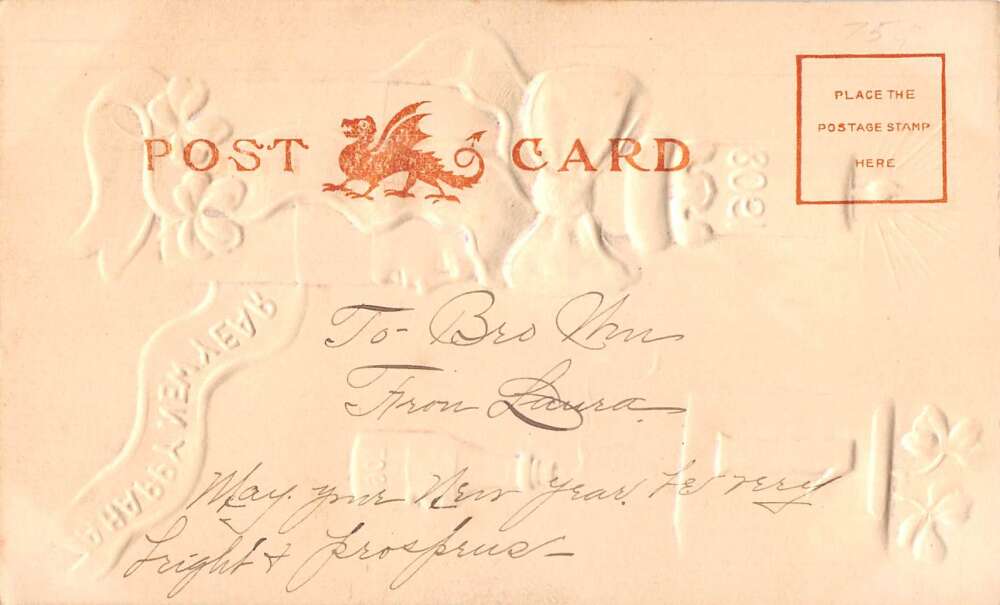 75
POST CARD
PLACE THE
POSTAGE STAMP
HERE
302
A HAPPY NEW YEAR
To- Bro Wm
From Laura
May your New Year be very
bright & prosprus-